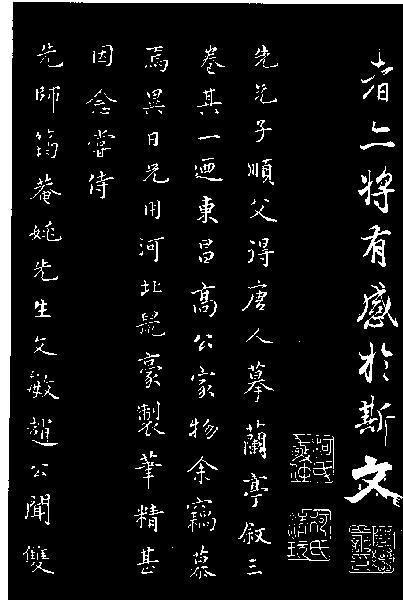 者亦將有感於斯文
先兄子順父得唐人摹蘭亭叙三
卷其一迺東昌高公家物余竊慕
焉異日兄用河北鼠豪製筆精甚
因念嘗侍
先師筠菴姚先生文敏趙公聞雙
柯氏敬仲